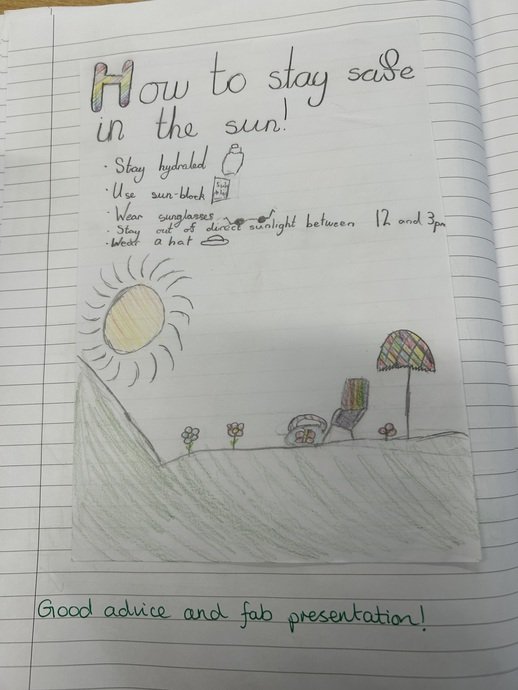 How to stay safe
in the sun!
· Stay hydrated
· Use sun-block
· Wear sunglasses
· Stay out of direct sunlight between 12 and 3pm
· Wear a hat
Good advice and fab presentation!